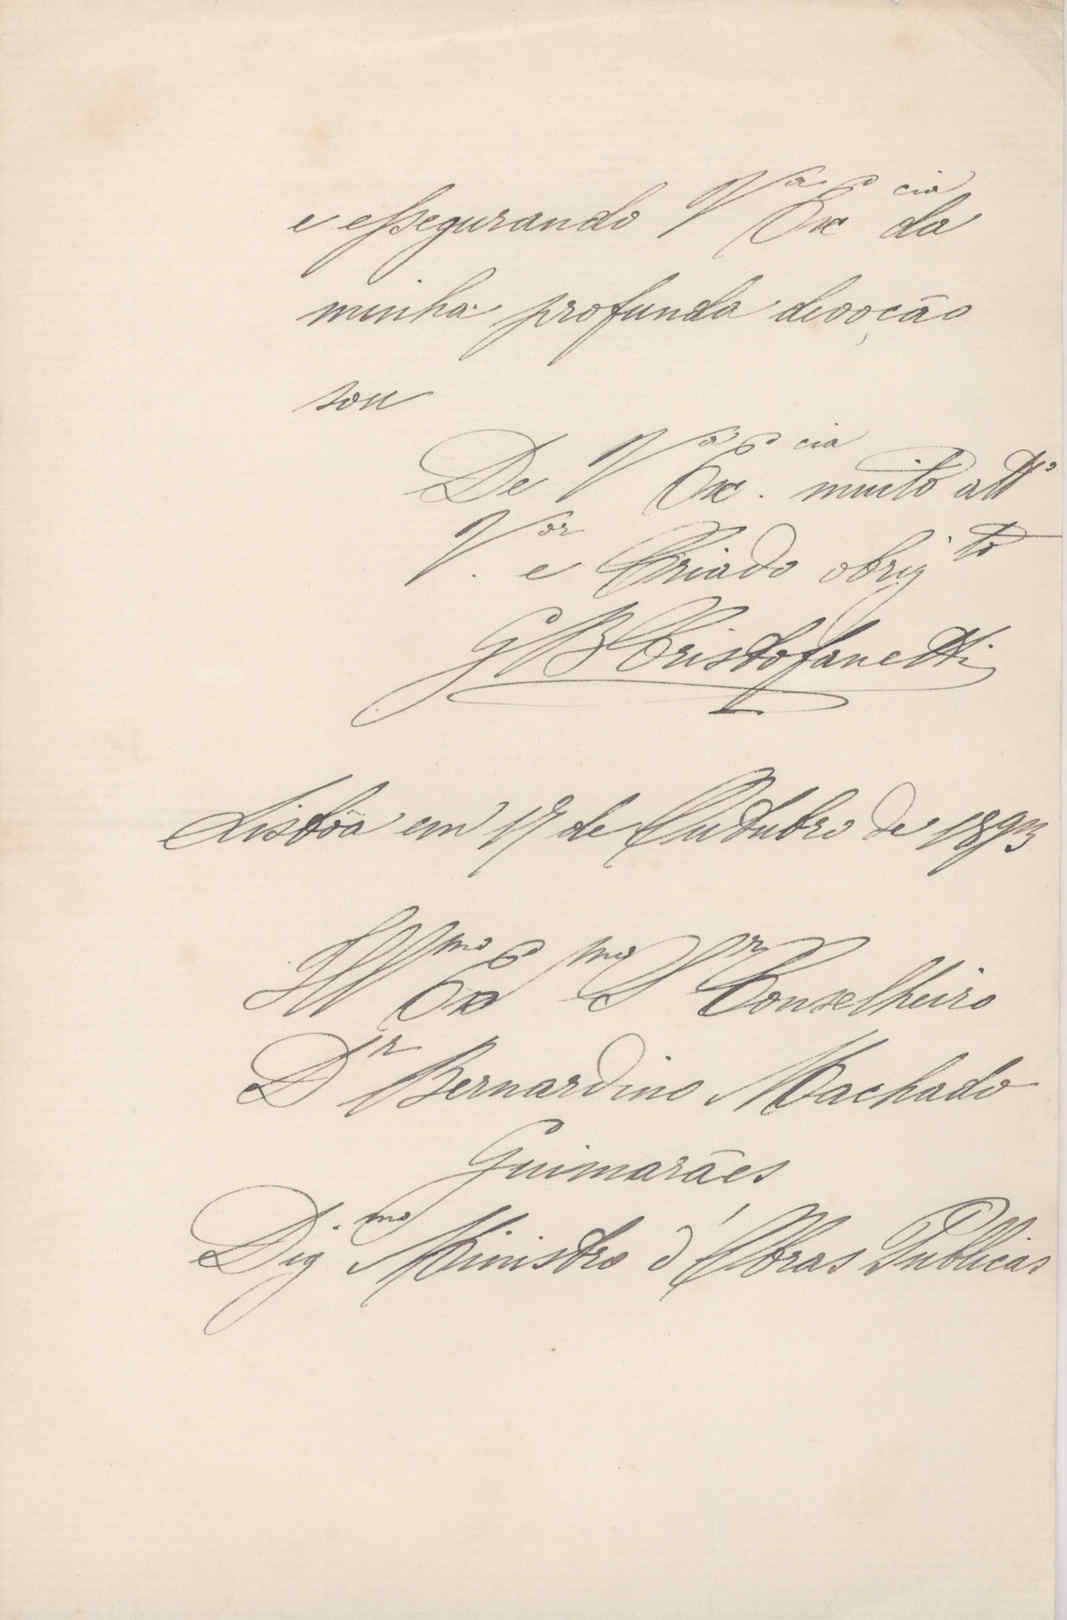 e essegurando Vª Exᶜⁱᵃ da
minha profunda devoção
sou
De Vª Exᶜⁱᵃ. muito attº
Vᵒʳ. e Criado obrigᵗᵒ
G B Cristofanetti
Lisbôa em 17 de Outubro de 1893
Illᵐᵒ Exᵐᵒ Sʳ Conselheiro
Dʳ Bernardino Machado
Guimarães
Dig.ᵐᵒ Ministro d'Obras Publicas